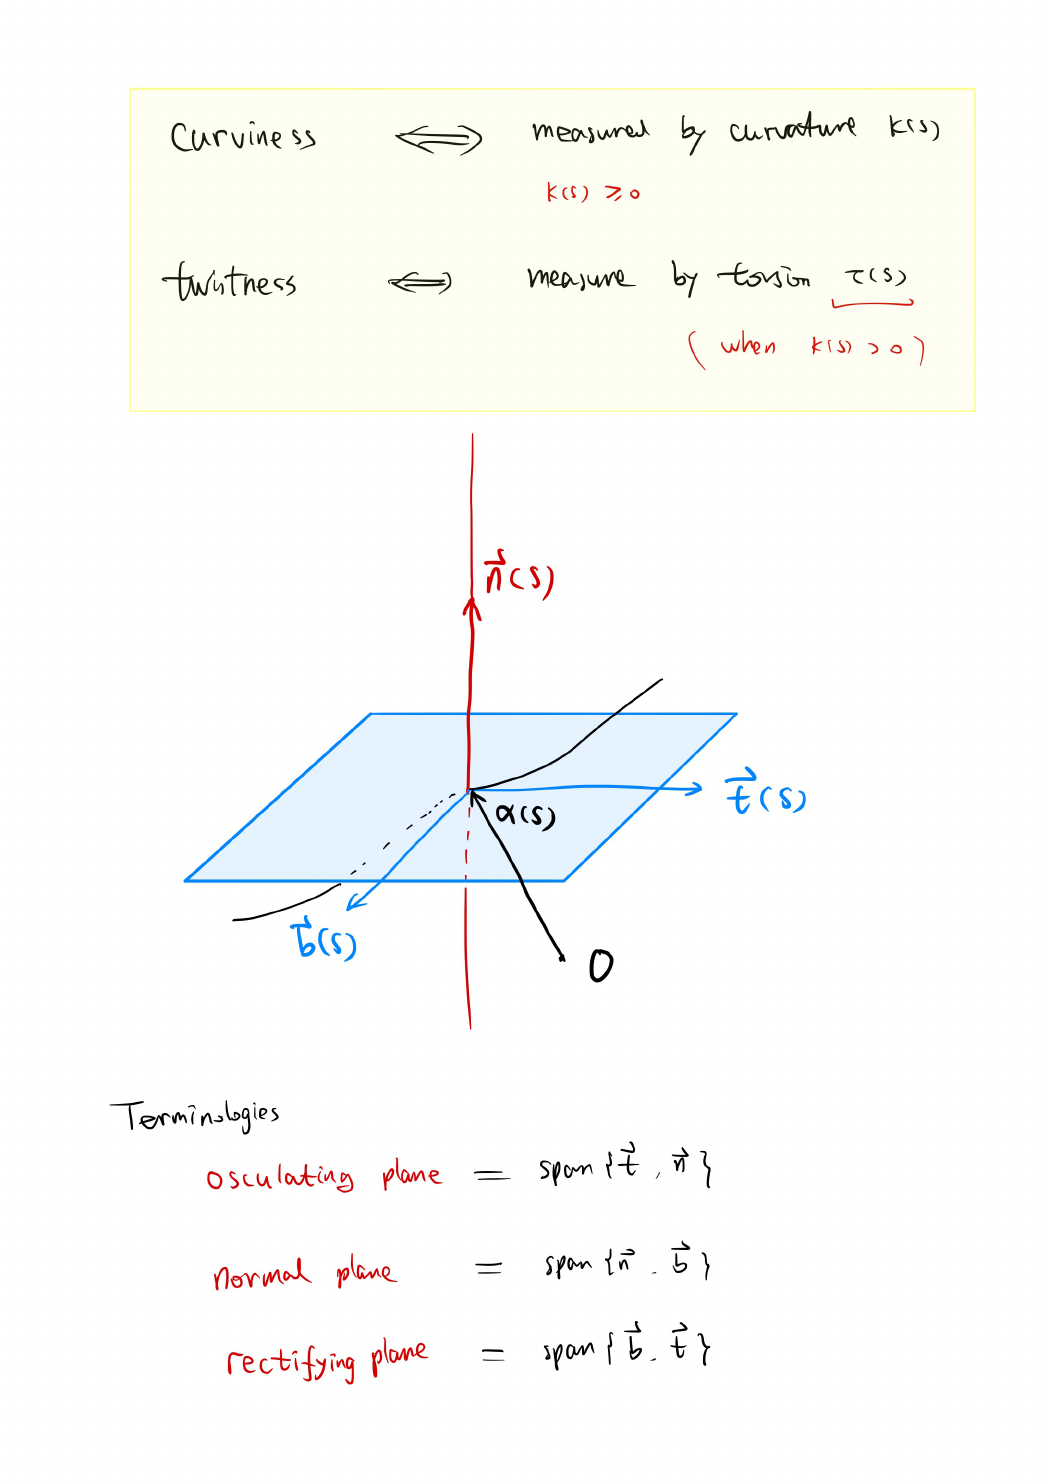 Curviness ⟺ measured by curvature k(s)
k(s) ≥ 0
twistness ⟺ measure by torsion τ(s)
( when k(s) > 0 )
n⃗(s)
t⃗(s)
α(s)
b⃗(s)
O
Terminologies
osculating plane = span { t⃗ , n⃗ }
normal plane = span { n⃗ . b⃗ }
rectifying plane = span { b⃗ . t⃗ }